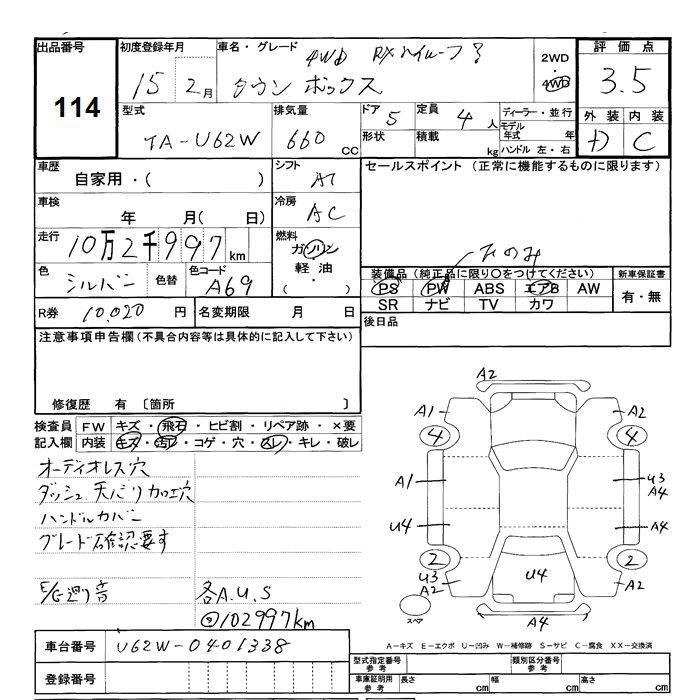 出品番号
114
初度登録年月
15 2月
車名・グレード
4WD RXハイルーフ
タウンボックス
2WD
・
4WD
評価点
3.5
型式
TA-U62W
排気量
660 CC
ドア
5
形状
定員
4人
積載
kg
ディーラー・並行
モデル年式 年
ハンドル 左・右
外装 内装
D C
車歴
自家用・( )
シフト
AT
セールスポイント (正常に機能するものに限ります)
車検
年 月( 日)
冷房
AC
走行
10万2千997km
燃料
ガソリン
軽油
・( )
のみ
色
シルバー
色替
色コード
A69
装備品 (純正品に限り〇をつけてください)
PS PW ABS エアB AW
SR ナビ TV カワ
新車保証書
有・無
R券 10,020 円
名変期限 月 日
後日品
注意事項申告欄(不具合内容等は具体的に記入して下さい)
修復歴 有 〔箇所 〕
検査員記入欄
FW キズ・飛石・ヒビ割・リペア跡・×要
内装 キズ・汚レ・コゲ・穴・スレ・キレ・破レ
オーディオレス穴
ダッシュ、天バリ加工穴
ハンドルカバー
グレード確認要す
E/G廻り音
各A.U.S
102997km
A2
A1 A2
4 4
A1 U3
A4
U4 A4
2 2
U3
A2 U4 A2
スペア
A4
A-キズ E-エクボ U-凹み W-補修跡 S-サビ C-腐食 XX-交換済
車台番号
U62W-0401338
登録番号
型式指定番号
参考
類別区分番号
参考
車庫証明用
参考
長さ cm 幅 cm 高さ cm